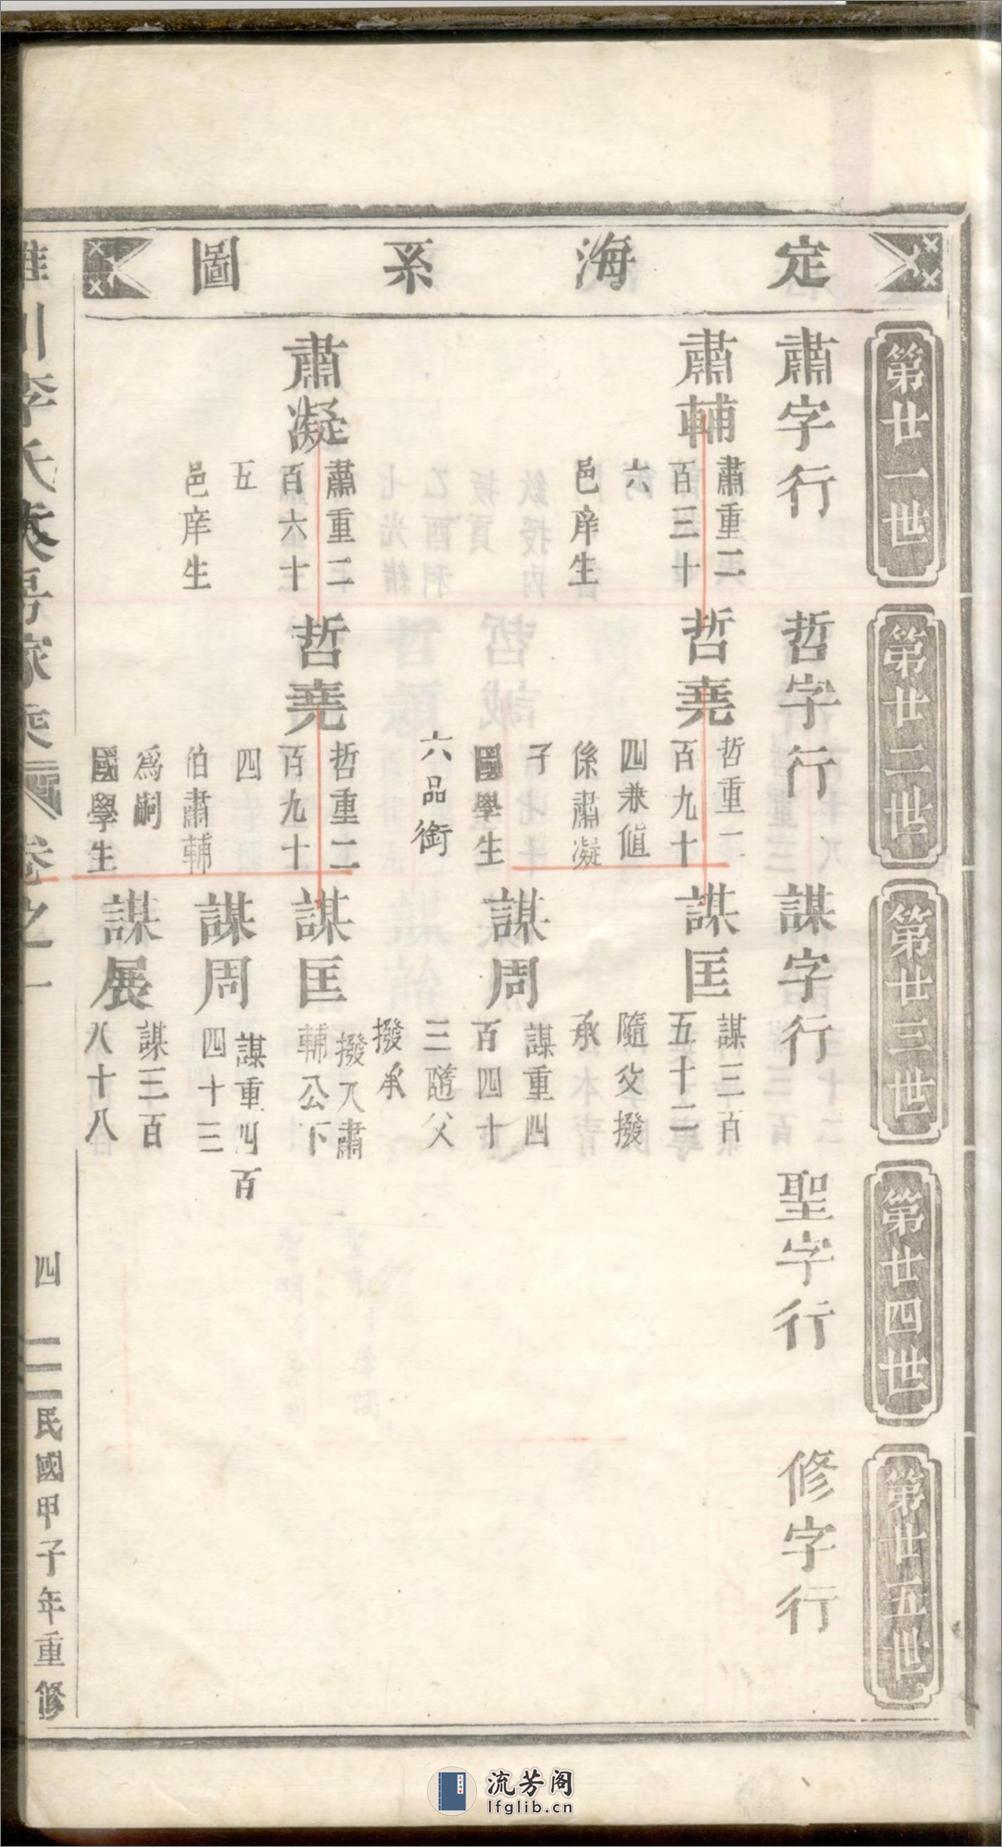 定海系圖
第廿一世
第廿二世
第廿三世
第廿四世
第廿五世
肅字行
哲字行
謀字行
聖字行
修字行
肅輔
肅重二
百三十
六
邑庠生
哲堯
哲重二
百九十
四兼值
係肅凝
子
國學生
六品銜
謀匡
謀三百
五十二
隨父撥
承
謀周
謀重四
百四十
三隨父
撥承
肅凝
肅重二
百六十
五
邑庠生
哲堯
哲重二
百九十
四
伯肅輔
為嗣
國學生
謀匡
撥入肅
輔公下
謀周
謀重四百
四十三
謀展
謀三百
八十八
川李氏
家乘
卷之一
四
民國甲子年重修
流芳阁
lfglib.cn